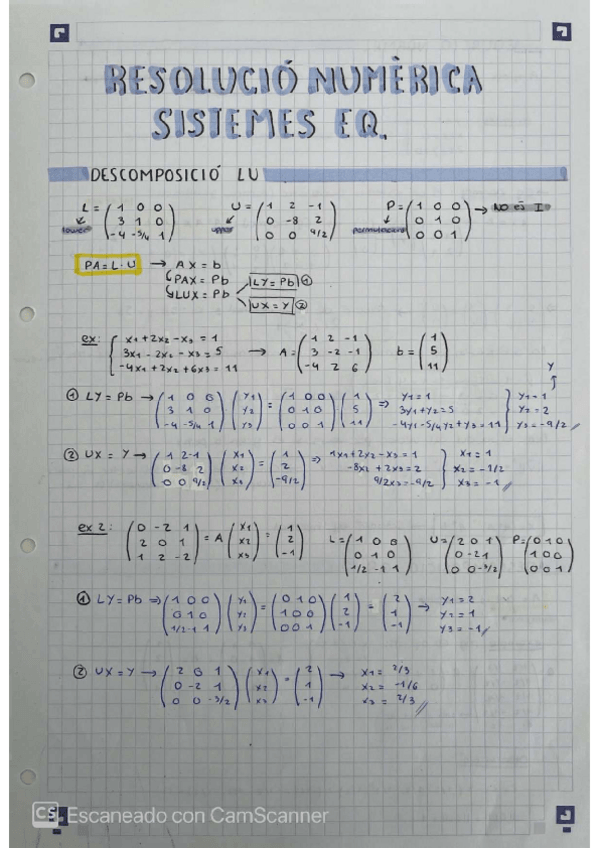 RESOLUCIÓ NUMÈRICA
SISTEMES EQ.
DESCOMPOSICIÓ LU
L = (1 0 0 / 3 1 0 / -4 -5/4 1) U = (1 2 -1 / 0 -8 2 / 0 0 9/2) P = (1 0 0 / 0 1 0 / 0 0 1) → NO és I
lower upper
PA = L · U → AX = b
PAX = Pb
LUX = Pb LY = Pb ①
UX = Y ②
ex: { x1 + 2x2 - x3 = 1 / 3x1 - 2x2 - x3 = 5 / -4x1 + 2x2 + 6x3 = 11 → A = (1 2 -1 / 3 -2 -1 / -4 2 6) b = (1 / 5 / 11)
Y
① LY = Pb → (1 0 0 / 3 1 0 / -4 -5/4 1) (Y1 / Y2 / Y3) = (1 0 0 / 0 1 0 / 0 0 1) (1 / 5 / 11) ⇒ Y1 = 1 / 3Y1 + Y2 = 5 / -4Y1 - 5/4 Y2 + Y3 = 11 } Y1 = 1 / Y2 = 2 / Y3 = -9/2
② UX = Y → (1 2 -1 / 0 -8 2 / 0 0 9/2) (x1 / x2 / x3) = (1 / 2 / -9/2) ⇒ 1x1 + 2x2 - x3 = 1 / -8x2 + 2x3 = 2 / 9/2x3 = -9/2 } x1 = 1 / x2 = -1/2 / x3 = -1
ex 2: (0 -2 1 / 2 0 1 / 1 2 -2) = A (x1 / x2 / x3) = (1 / 2 / -1) L = (1 0 0 / 0 1 0 / 1/2 -1 1) U = (2 0 1 / 0 -2 1 / 0 0 -3/2) P = (0 1 0 / 1 0 0 / 0 0 1)
① LY = Pb ⇒ (1 0 0 / 0 1 0 / 1/2 -1 1) (Y1 / Y2 / Y3) = (0 1 0 / 1 0 0 / 0 0 1) (1 / 2 / -1) = (2 / 1 / -1) → Y1 = 2 / Y2 = 1 / Y3 = -1
② UX = Y → (2 0 1 / 0 -2 1 / 0 0 -3/2) (x1 / x2 / x3) = (2 / 1 / -1) → x1 = 2/3 / x2 = -1/6 / x3 = 2/3
CS Escaneado con CamScanner